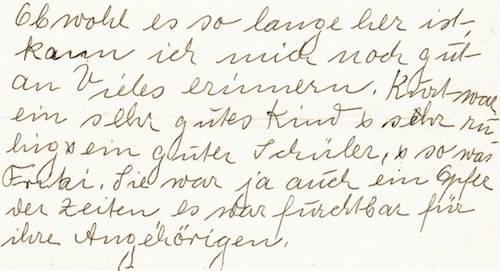 Obwohl es so lange her ist,
kann ich mich noch gut
an Vieles erinnern. Kurt war
ein sehr gutes Kind & sehr ru-
hig & ein guter Schüler, & so war
Sie war ja auch ein Opfer
der Zeiten es war furchtbar für
ihre Angehörigen.